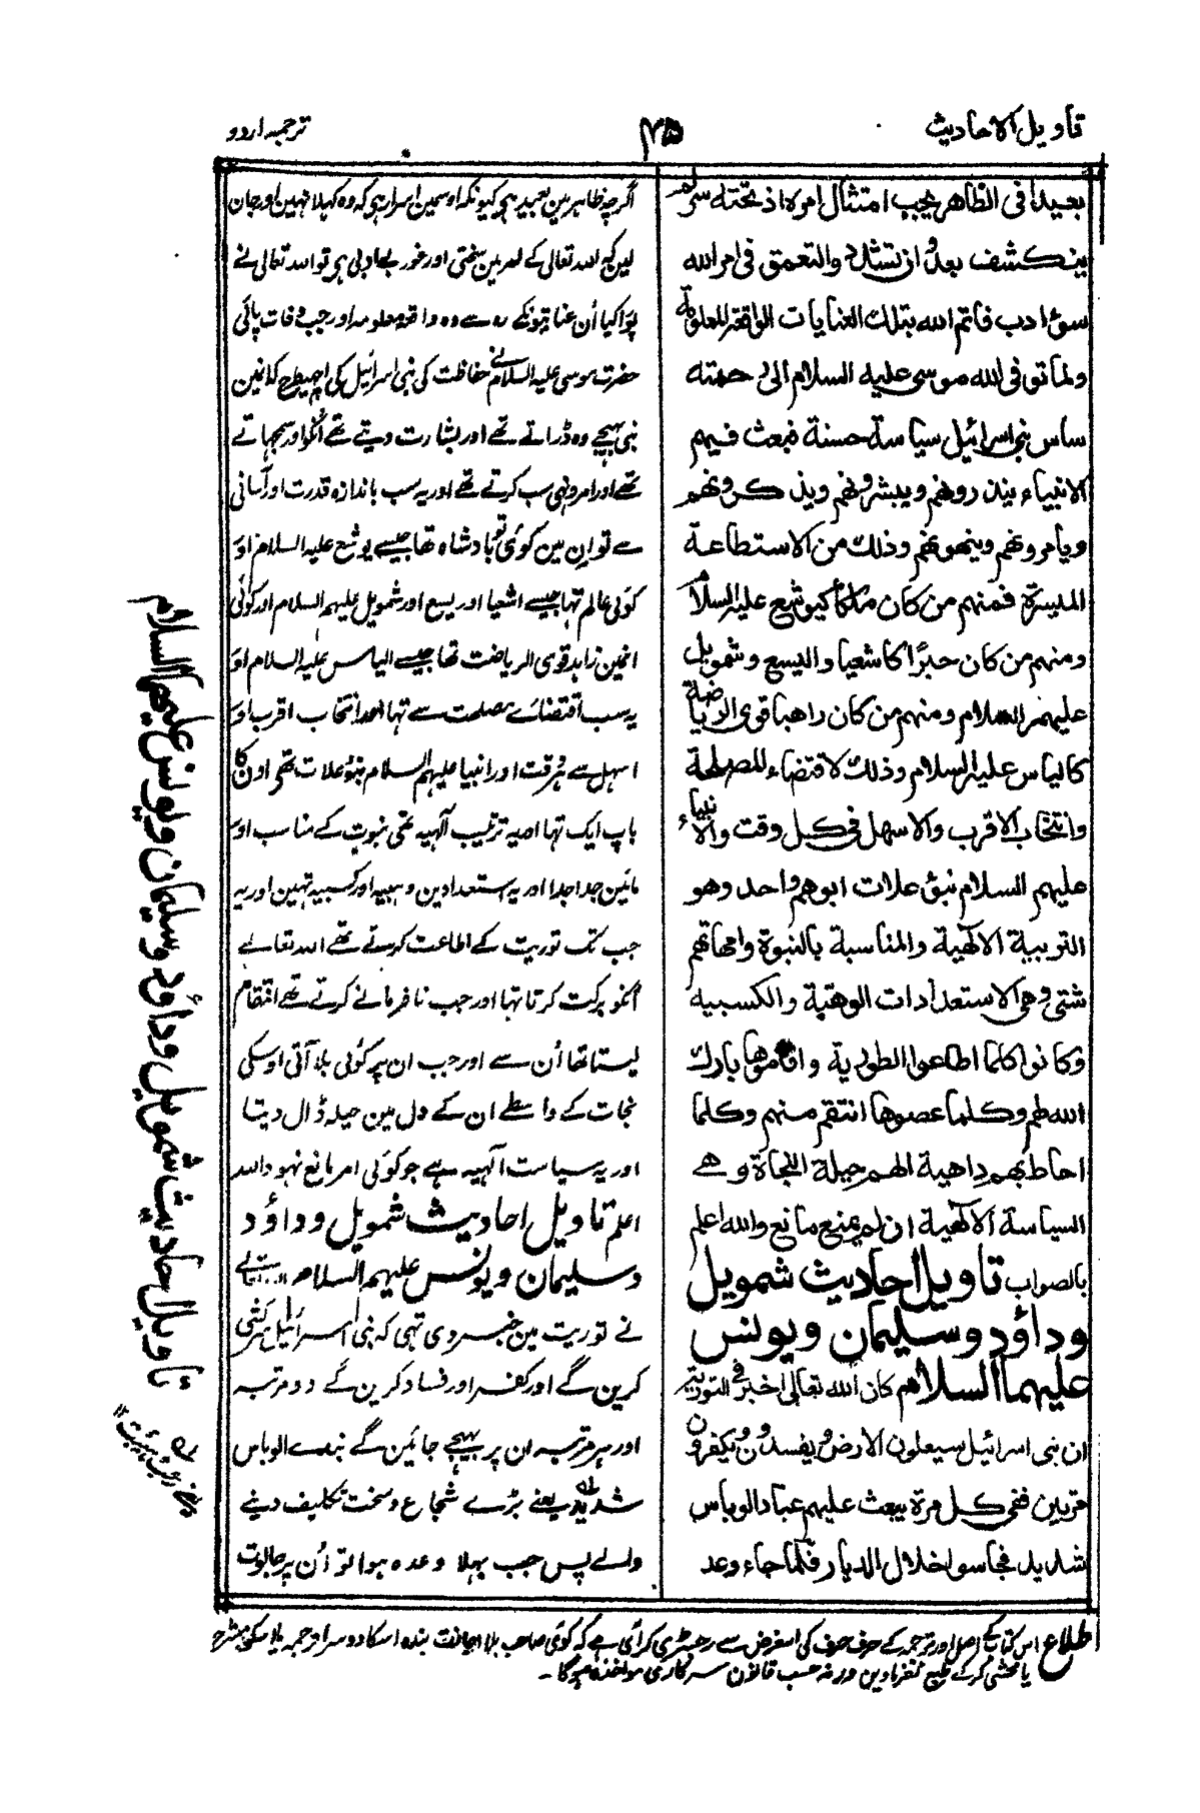 تاویل الاحادیث
۴۵
ترجمہ اردو
بعیدا فی الظاهر یجب امتثال امره اذ تحته سر
ینکشف بعد وان تسئل والتعمق فی امر الله
سوء ادب فاتم الله بتلك العنایات الواقعة المعلومة
ولما توفی الله موسی علیه السلام الی رحمته
ساس بنی اسرائیل سیاسة حسنة فبعث فیهم
الانبیاء ینذرونهم ویبشرونهم ویذکرونهم
ویامرونهم وینهونهم وذلك من الاستطاعة
المیسرة فمنهم من کان ملکا کیوشع علیه السلام
ومنهم من کان حبرًا کاشعیا والیسع وشمویل
علیهم السلام ومنهم من کان راهبا قوی الریاضة
کالیاس علیه السلام وذلك لاقتضاء المصلحة
وانتخاب الاقرب والاسهل فی کل وقت والانبیاء
علیهم السلام بنو علات ابوهم واحد وهو
التربیة الالٰهیة والمناسبة بالنبوة وامهاتهم
شتی وهی الاستعدادات الوهبیة والکسبیه
وکانوا کلما اطاعوا التوریة واقاموها بارك
الله لهم وکلما عصوها انتقم منهم وکلما
احاط بهم داهیة الهم حیلة النجاة وهے
السیاسة الالٰهیة ان لم یمنع مانع والله اعلم
بالصواب تاویل احادیث شمویل
وداؤد وسلیمان ویونس
علیهما السلام کان الله تعالی اخبر فی التوریة
ان بنی اسرائیل سیعلون الارض ویفسدون ویکفرون
مرتین ففی کل مرة یبعث علیهم عبادا لوباس
شدید فجاسوا خلال الدیار فلما جاء وعد
اگرچہ ظاہر مین بعید ہو کیونکہ اوسمین اسرار ہو کہ وہ کہلا نہین اور جان
لین کہ اللہ تعالی کے امر مین سختی اور غور بے ادبی ہر تو اللہ تعالی نے
پورا کیا اُن عنایتونکے رہ سے وہ واقعہ معلومہ اور جب وفات پائی
حضرت موسی علیہ السلام نے حفاظت کی بنی اسرائیل کی اچھیطرح کہ انمین
نبی بہیجے وہ ڈراتے تھے اور بشارت دیتے تھے اُنکو اور سمجہاتے
تھے اور امر ونہی سب کرتے تھے اور یہ سب باندازہ قدرت اور آسانی
سے تو ان مین کوئی تو بادشاہ تھا جیسے یوشع علیہ السلام اور
کوئی عالم تہا جیسے اشعیا اور یسع اور شمویل علیہم السلام اور کوئی
انمین زاہد قوی الریاضت تھا جیسے الیاس علیہ السلام اور
یہ سب اقتضائے مصلحت سے تہا اور انتخاب اقرب اور
اسہل سے ہر وقت اور انبیا علیہم السلام بنو علات تھی اون کا
باپ ایک تہا اور یہ تربیت آلہیہ تھی نبوت کے مناسب اور
مائین جدا جدا اور یہ استعدادین وہبیہ اور کسبیہ تہین اور یہ
جب تک توریت کے اطاعت کرتے تھے اللہ تعالے
انکو برکت کرتا تہا اور جب نافرمانے کرتے تھے انتقام
لیتا تھا اُن سے اور جب ان پر کوئی بلا آتی اوسکی
نجات کے واسطے ان کے دل مین حیلہ ڈال دیتا
اور یہ سیاست آلہیہ ہے جو کوئی امر مانع نہو واللہ
اعلم تاویل احادیث شمویل وداؤد
وسلیمان ویونس علیہم السلام اللہ تعالے
نے توریت مین خبر دی تہی کہ بنی اسرائیل سرکشی
کرین گے اور کفر اور فساد کرین گے دو مرتبہ
اور ہر مرتبہ ان پر بہیجے جائین گے بندے الوباس
شدید یعنے بڑے شجاع وسخت تکلیف دینے
والے پس جب پہلا وعدہ ہوا تو اُن پر جالوت
تاویل احادیث شمویل وداؤد وسلیمان ویونس علیہم السلام
اطلاع اس کتاب کے اصل اور ترجمہ کے حرف حرف کی اسغرض سے رجسٹری کرائی ہے کہ کوئی صاحب بلا اجازت بندہ اسکا دوسرا ترجمہ یا اسکی شرح
یا محشی کر کے طبع نفرماوین ورنہ حسب قانون سرکاری مواخذہ ہوگا ۔